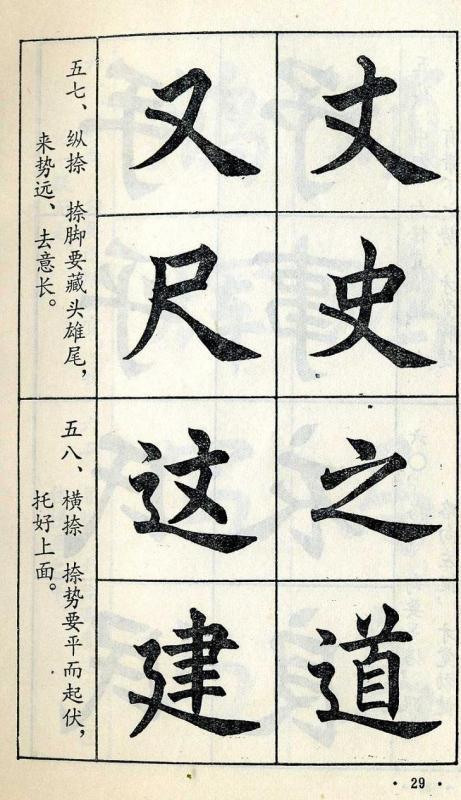 丈 又
史 尺
五七、纵捺 捺脚要藏头雄尾，
来势远、去意长。
之 这
道 建
五八、横捺 捺势要平而起伏，
托好上面。
· 29 ·